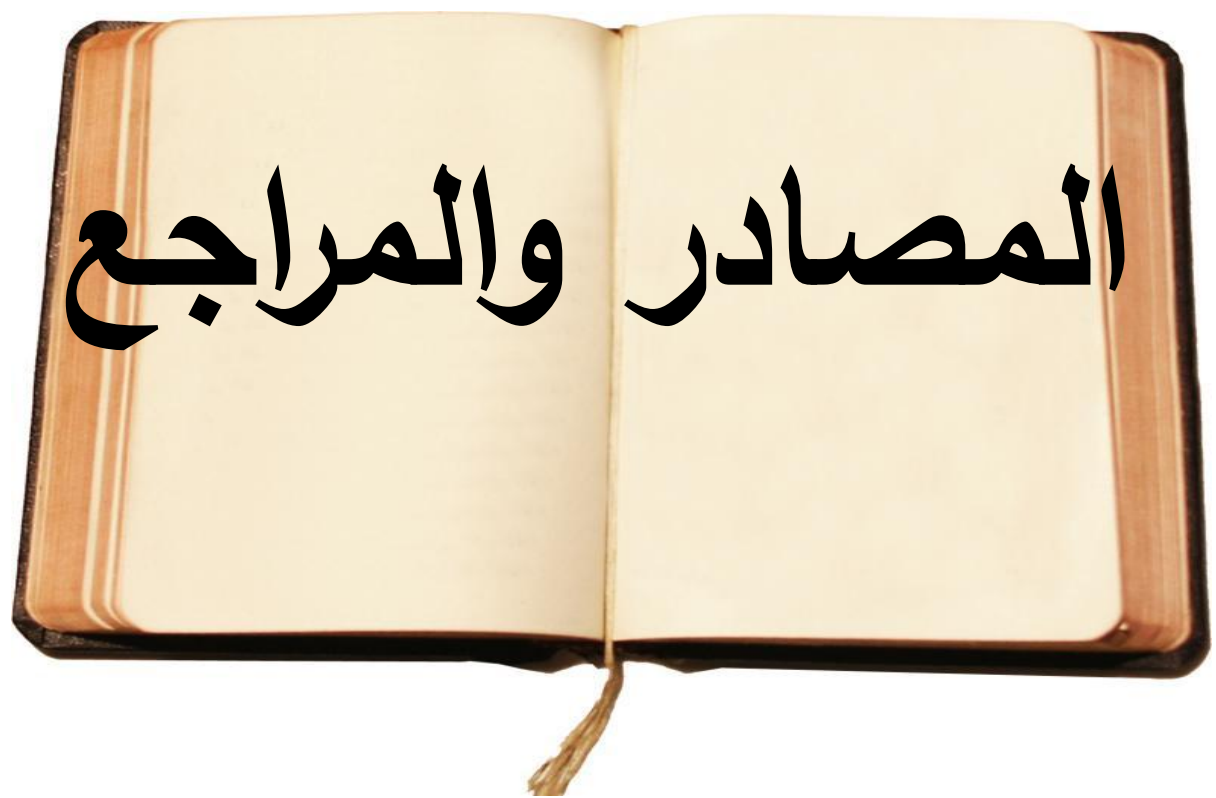 المصادر والمراجع